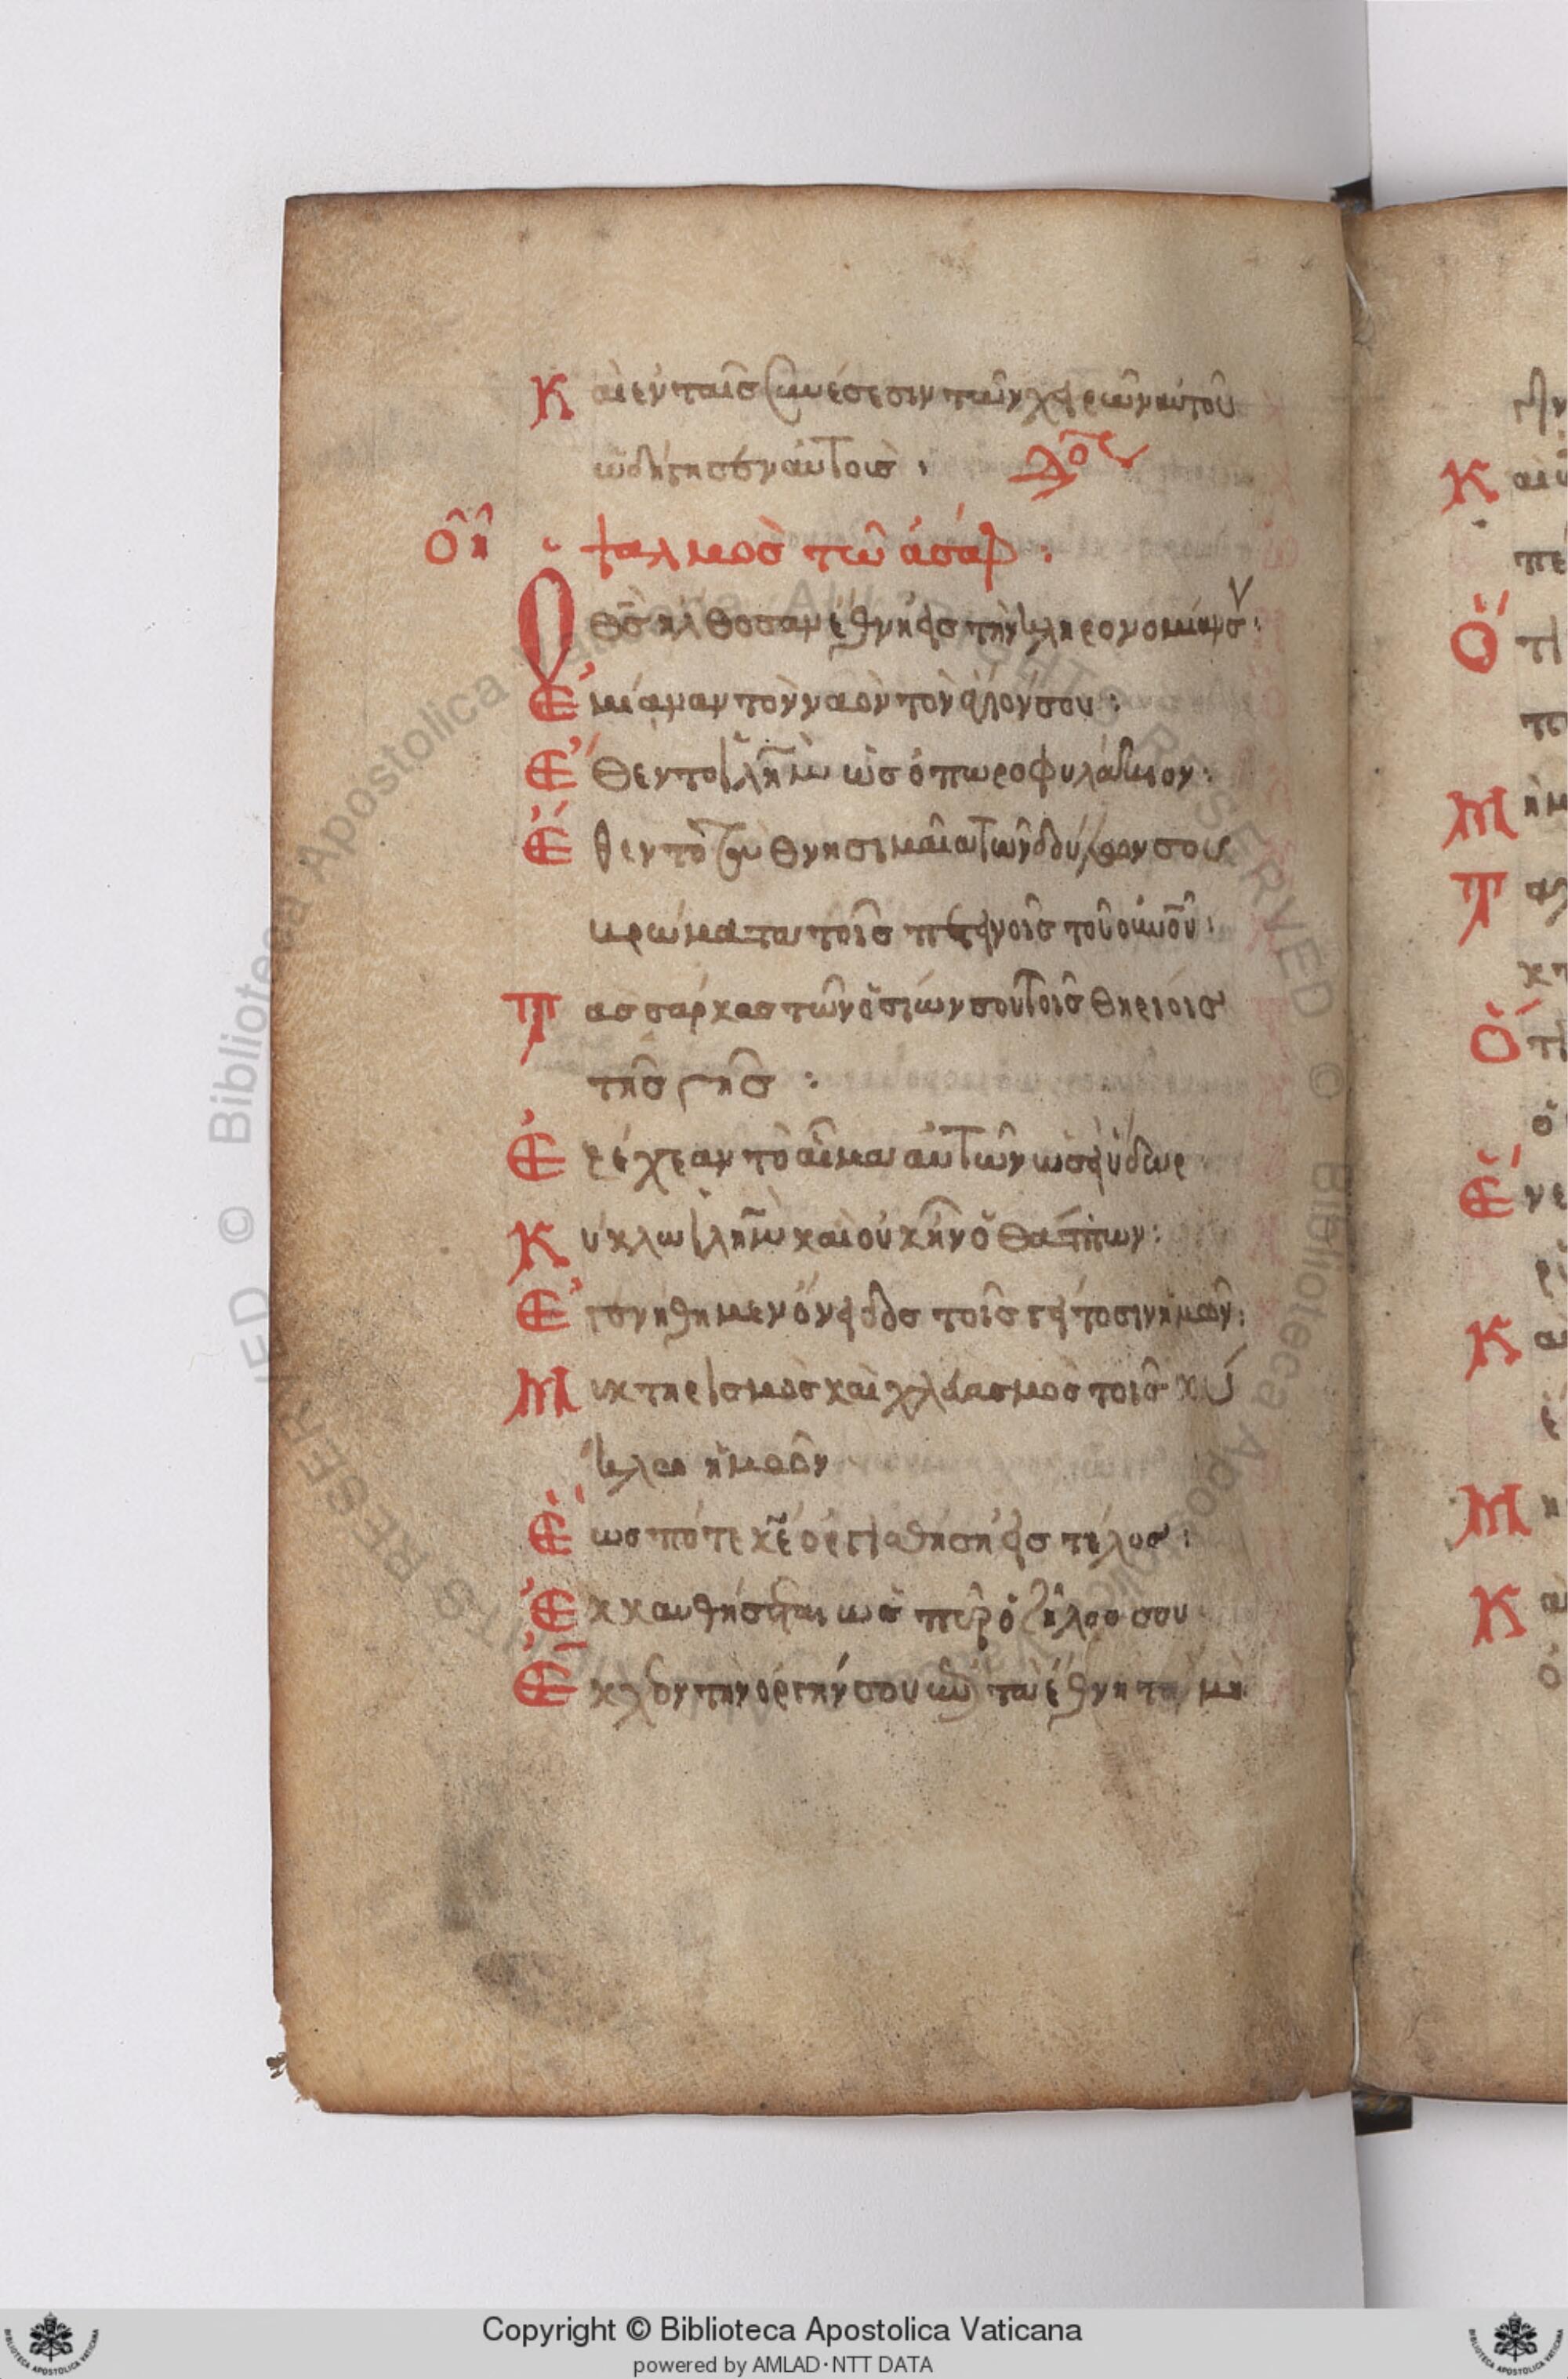 Καὶ ἐν ταῖς συνέσεσιν τῶν χειρῶν αὐτοῦ
ὡδήγησεν αὐτοὺς
ΟΗ ψαλμὸς τῶ ἀσάφ :
Ὁ θς ἤλθοσαν ἔθνη εἰς τὴν κληρονομίαν σ :
Ἐμίαναν τὸν ναὸν τὸν ἅγιον σου :
Ἔθεντο ιλημ ὡς ὀπωροφυλάκιον :
Ἔθεντο τὰ θνησιμαῖα τῶν δούλων σου
βρώματα τοῖς πετεινοῖς τοῦ οὐνοῦ :
Τὰς σάρκας τῶν ὁσίων σου τοῖς θηρίοις
τῆς γῆς :
Ἐξέχεαν τὸ αἷμα αὐτῶν ὡσεὶ ὕδωρ
Κύκλω ιλημ καὶ οὐκ ἦν ὁ θάπτων :
Ἐγενήθημεν ὄνειδος τοῖς γείτοσιν ἡμῶν :
Μυκτηρισμὸς καὶ χλευασμὸς τοῖς κύ
κλω ἡμῶν
Ἕως πότε κε ὀργισθήση εἰς τέλος :
Ἐκκαυθήσεται ὡς πῦρ ὁ ζῆλος σου
Ἔκχεον τὴν ὀργήν σου ἐπὶ τὰ ἔθνη τὰ μὴ
Copyright © Biblioteca Apostolica Vaticana
powered by AMLAD·NTT DATA